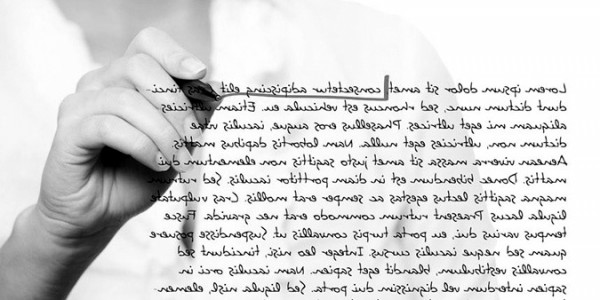 Lorem ipsum dolor sit amet consectetur adipiscing elit tinci-
dunt dictum nunc, sed rhoncus est vehicula eu. Etiam ultricies
aliquam mi eget ultrices. Phasellus eros augue, iaculis vitae
dictum non, ultricies eget nulla. Nam lobortis dapibus mattis.
Aenean viverra massa sit amet justo sagittis non elementum dui
mattis. Donec bibendum est in diam porttitor iaculis. Sed ligula
magna sagittis lectus egestas ac semper erat mollis. Cras vulputate
ligula lacus. Praesent rutrum commodo erat nec gravida. Fusce
tempus varius dui, eu porta turpis convallis ut. Suspendisse posuere
quam sed neque iaculis cursus. Integer leo nisi, tincidunt sed
convallis vestibulum, blandit eget sapien. Nam iaculis orci in
sapien interdum vel dignissim dui porta. Sed ligula nisl, elemen-